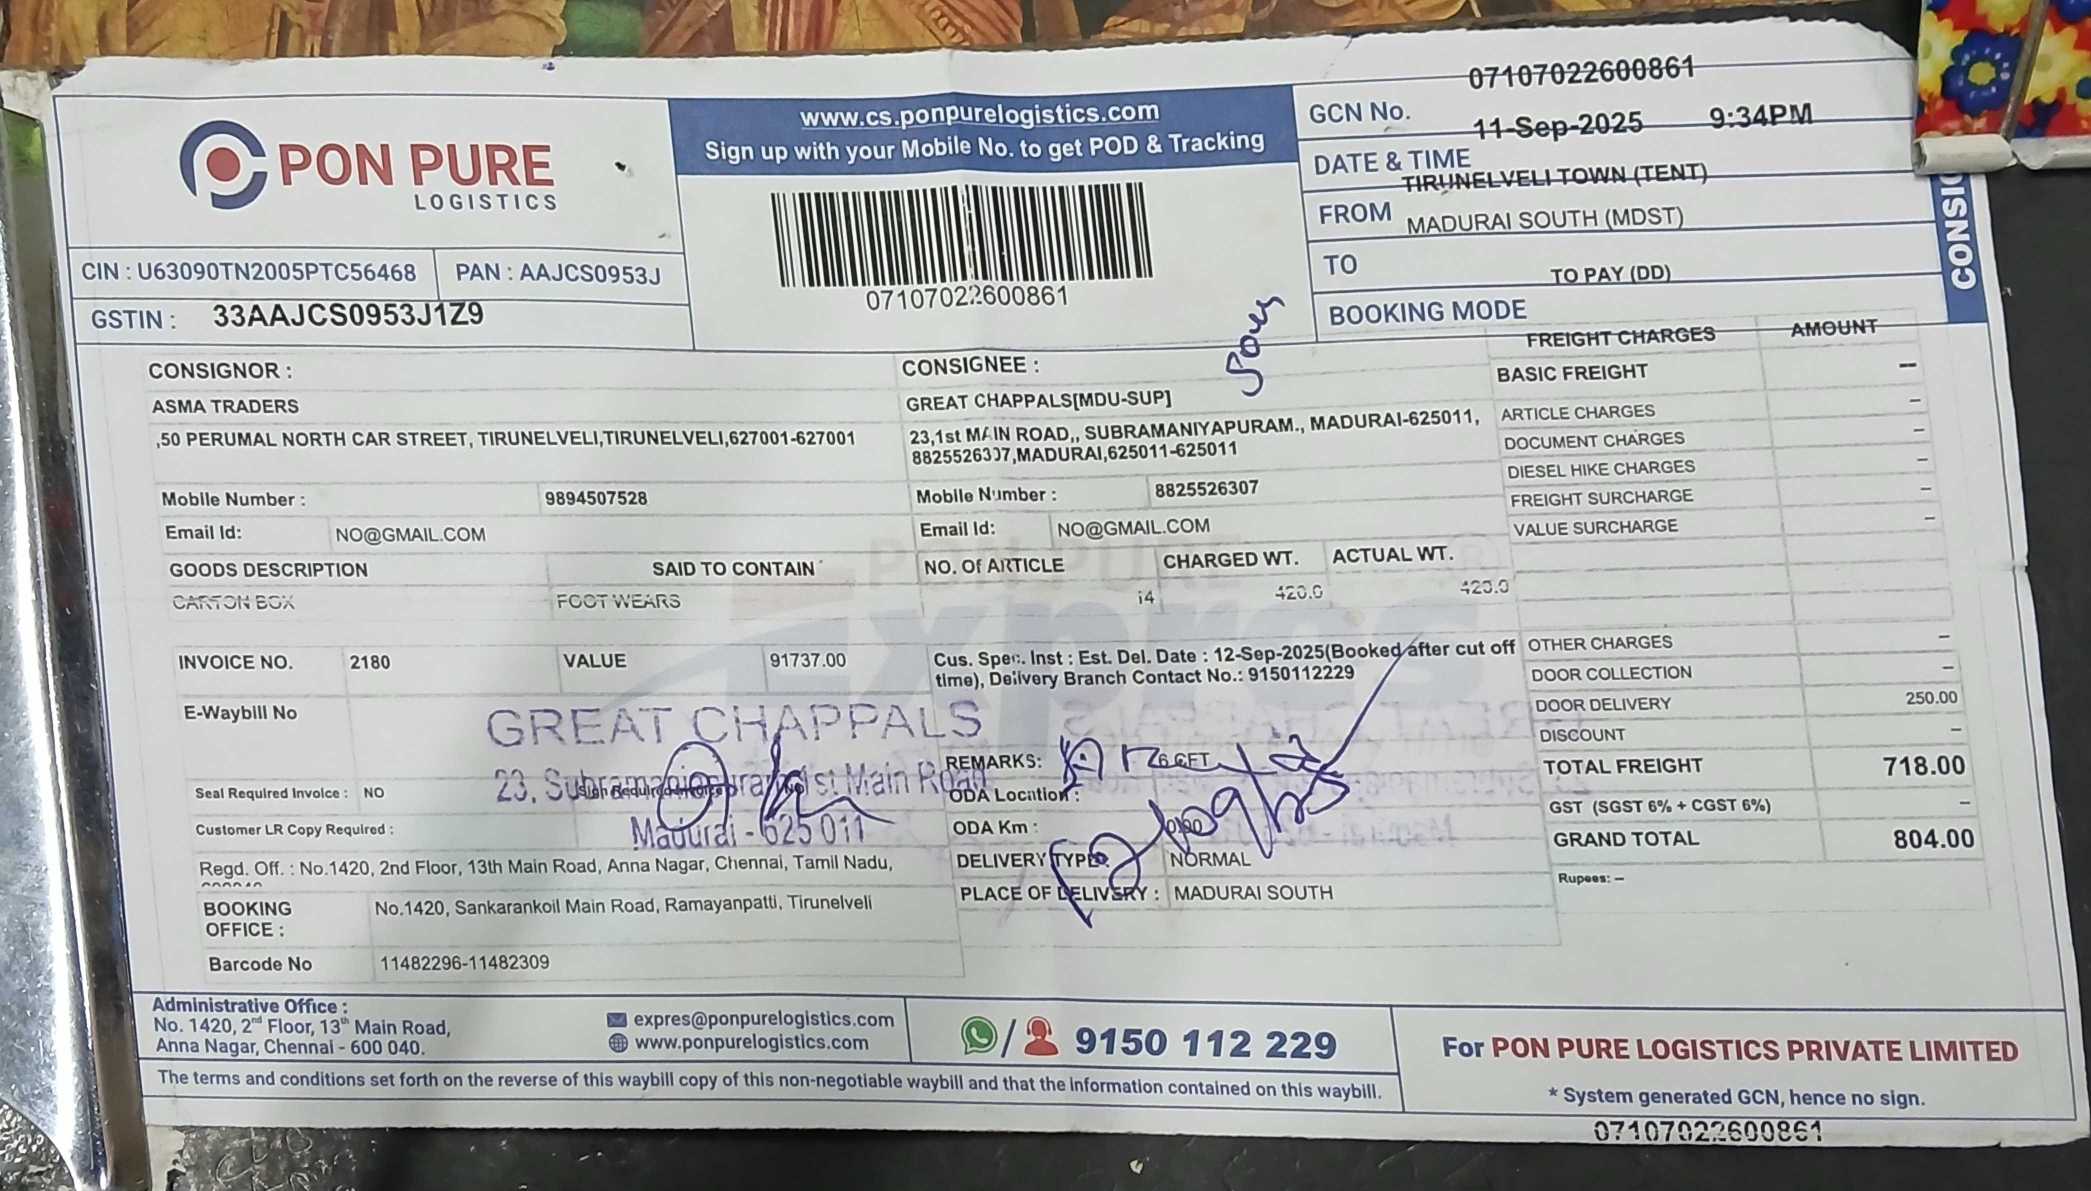 PON PURE
LOGISTICS
CIN : U63090TN2005PTC56468
PAN : AAJCS0953J
GSTIN : 33AAJCS0953J1Z9
www.cs.ponpurelogistics.com
Sign up with your Mobile No. to get POD & Tracking
07107022600861
GCN No. 07107022600861
DATE & TIME 11-Sep-2025 9:34PM
FROM TIRUNELVELI TOWN (TENT)
TO MADURAI SOUTH (MDST)
BOOKING MODE TO PAY (DD)
CONSIG
CONSIGNOR :
ASMA TRADERS
,50 PERUMAL NORTH CAR STREET, TIRUNELVELI,TIRUNELVELI,627001-627001
Mobile Number : 9894507528
Email Id: NO@GMAIL.COM
CONSIGNEE :
GREAT CHAPPALS[MDU-SUP]
23,1st MAIN ROAD,, SUBRAMANIYAPURAM., MADURAI-625011,
8825526307,MADURAI,625011-625011
Mobile Number : 8825526307
Email Id: NO@GMAIL.COM
GOODS DESCRIPTION SAID TO CONTAIN NO. Of ARTICLE CHARGED WT. ACTUAL WT.
CARTON BOX FOOT WEARS 14 420.0 420.0
INVOICE NO. 2180 VALUE 91737.00
Cus. Spec. Inst : Est. Del. Date : 12-Sep-2025(Booked after cut off
time), Delivery Branch Contact No.: 9150112229
E-Waybill No
GREAT CHAPPALS
23, Subramaniapuram 1st Main Road
Madurai - 625 011
Seal Required Invoice : NO
Customer LR Copy Required :
REMARKS:
ODA Location :
ODA Km :
DELIVERY TYPE: NORMAL
PLACE OF DELIVERY : MADURAI SOUTH
Regd. Off. : No.1420, 2nd Floor, 13th Main Road, Anna Nagar, Chennai, Tamil Nadu,
BOOKING
OFFICE :
No.1420, Sankarankoil Main Road, Ramayanpatti, Tirunelveli
Barcode No 11482296-11482309
FREIGHT CHARGES AMOUNT
BASIC FREIGHT –
ARTICLE CHARGES –
DOCUMENT CHARGES –
DIESEL HIKE CHARGES –
FREIGHT SURCHARGE –
VALUE SURCHARGE –
OTHER CHARGES –
DOOR COLLECTION –
DOOR DELIVERY 250.00
DISCOUNT –
TOTAL FREIGHT 718.00
GST (SGST 6% + CGST 6%) –
GRAND TOTAL 804.00
Rupees: –
Administrative Office :
No. 1420, 2nd Floor, 13th Main Road,
Anna Nagar, Chennai - 600 040.
expres@ponpurelogistics.com
www.ponpurelogistics.com
/ 9150 112 229
The terms and conditions set forth on the reverse of this waybill copy of this non-negotiable waybill and that the information contained on this waybill.
For PON PURE LOGISTICS PRIVATE LIMITED
* System generated GCN, hence no sign.
07107022600861